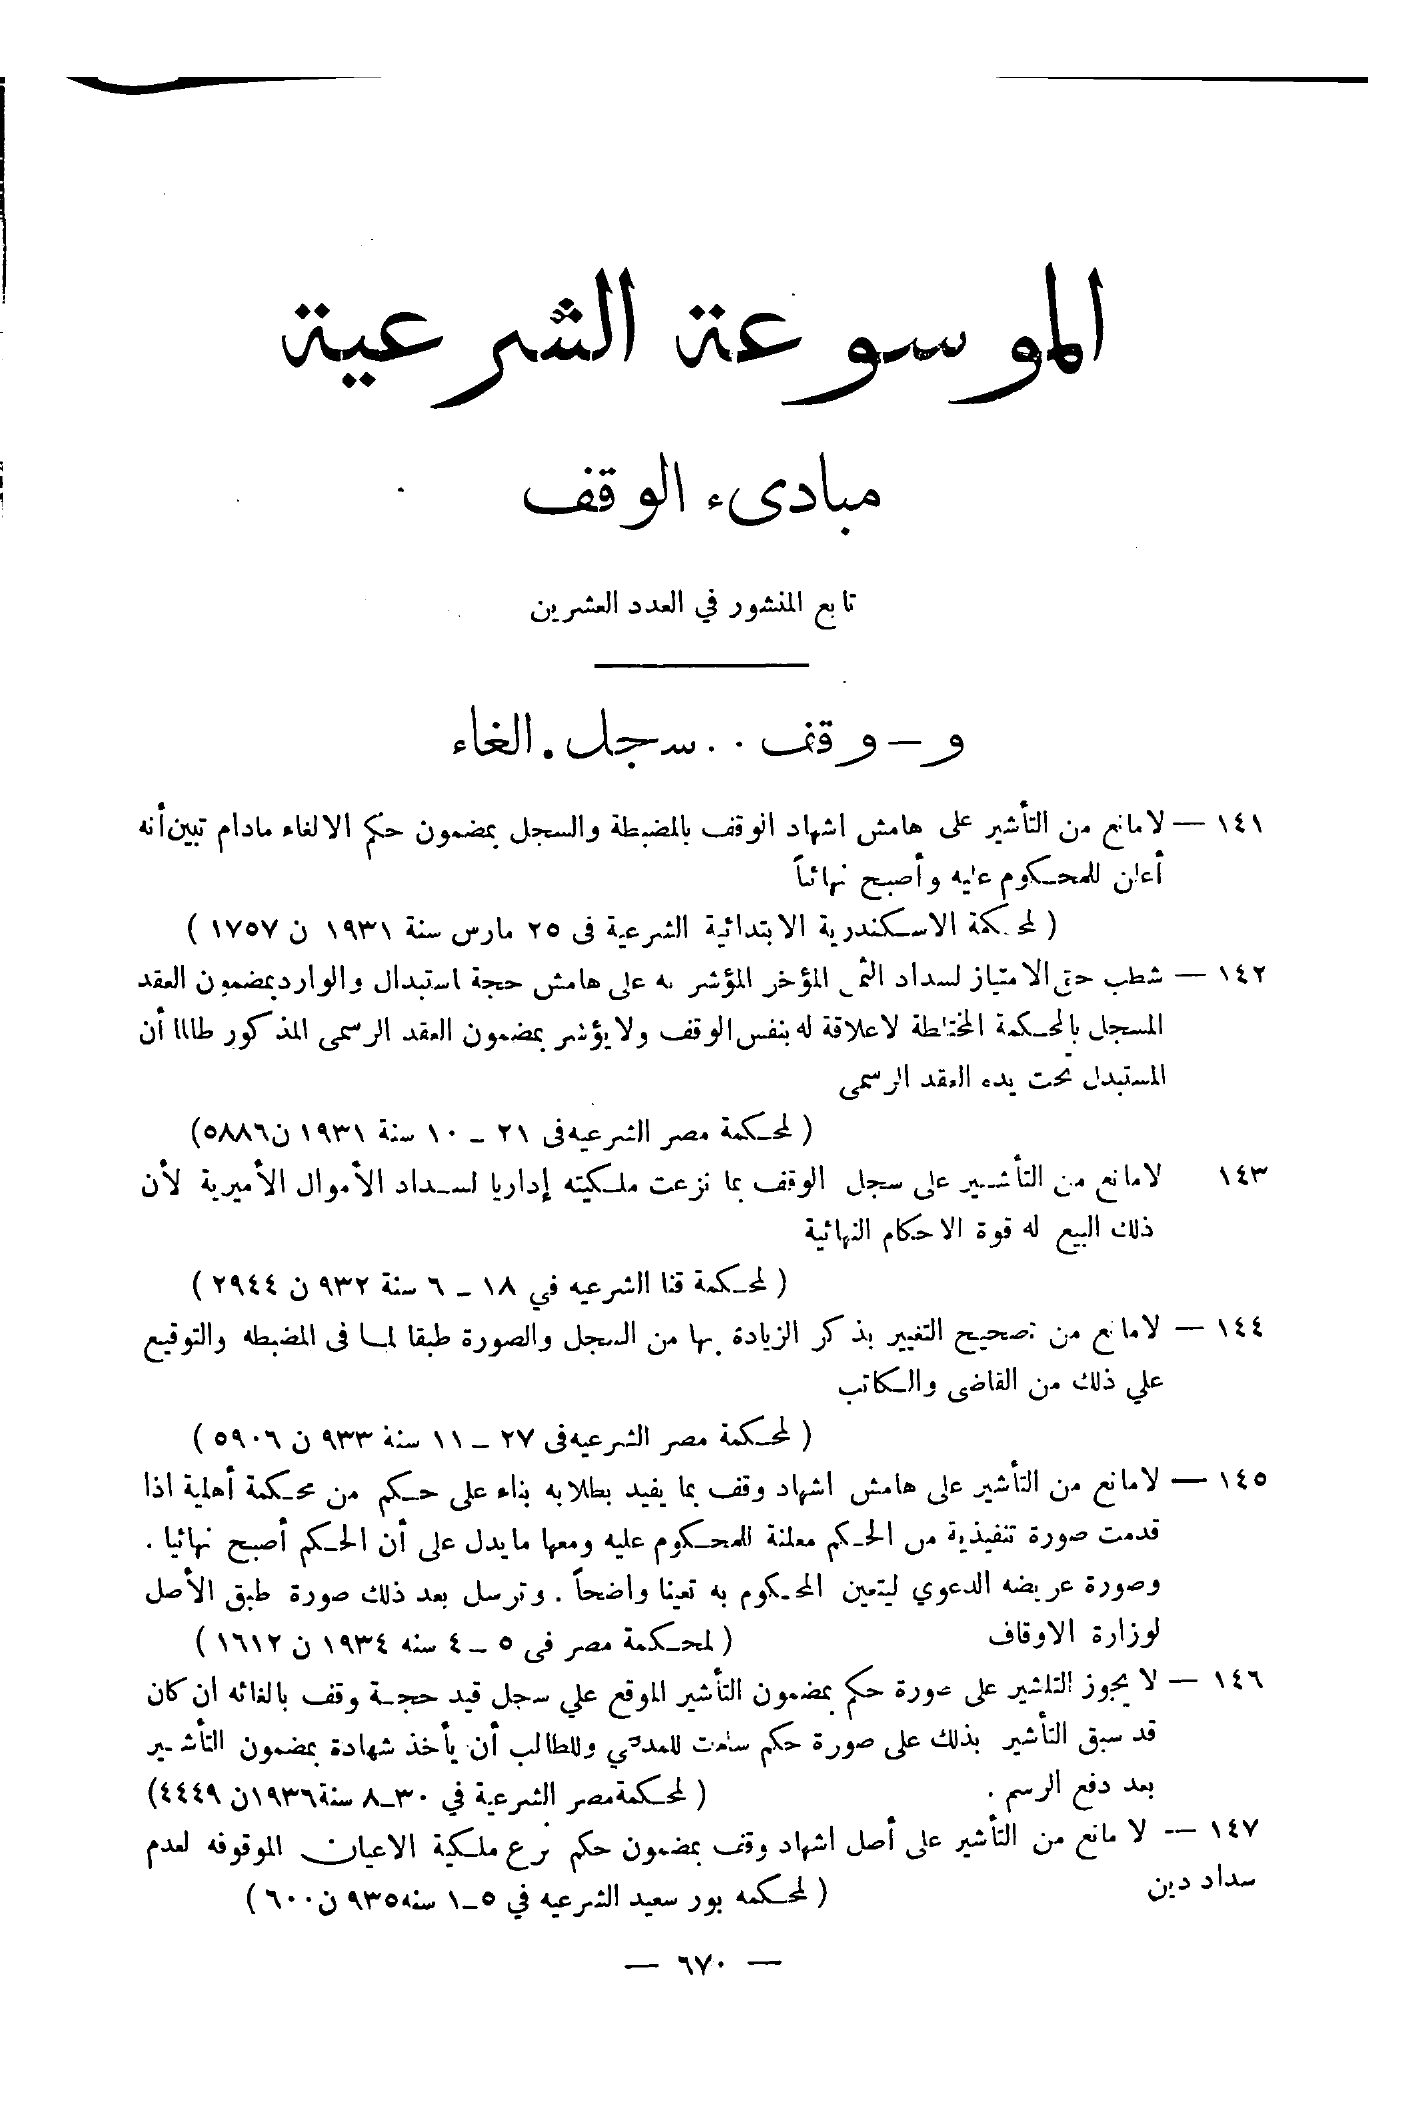 الموسوعة الشرعية
مبادىء الوقف
تابع المنشور في العدد العشرين
و – وقف . . سجل . الغاء
١٤١ — لا مانع من التأشير على هامش اشهاد الوقف بالمضبطة والسجل بمضمون حكم الالغاء مادام تبين أنه
أعلن للمحكوم عليه وأصبح نهائياً
( لمحكمة الاسكندرية الابتدائية الشرعية فى ٢٥ مارس سنة ١٩٣١ ن ١٧٥٧ )
١٤٢ — شطب حق الامتياز لسداد الثمن المؤخر المؤشر به على هامش حجة استبدال والوارد بمضمون العقد
المسجل بالمحكمة المختلطة لاعلاقة له بنفس الوقف ولا يؤشر بمضمون العقد الرسمى المذكور طالما أن
المستبدل تحت يده العقد الرسمى
( لمحكمة مصر الشرعيه فى ٢١ – ١٠ سنة ١٩٣١ ن ٥٨٨٦)
١٤٣ لامانع من التأشير على سجل الوقف بما نزعت ملكيته إداريا لسداد الأموال الأميرية لأن
ذلك البيع له قوة الاحكام النهائية
( لمحكمة قنا الشرعيه في ١٨ – ٦ سنة ٩٣٢ ن ٢٩٤٤ )
١٤٤ — لامانع من تصحيح التغيير بذكر الزيادة بها من السجل والصورة طبقا لما فى المضبطه والتوقيع
علي ذلك من القاضى والكاتب
( لمحكمة مصر الشرعيه فى ٢٧ – ١١ سنة ٩٣٣ ن ٥٩٠٦ )
١٤٥ — لامانع من التأشير على هامش اشهاد وقف بما يفيد بطلابه بناء على حكم من محكمة أهلية اذا
قدمت صورة تنفيذية من الحكم معلنة للمحكوم عليه ومعها مايدل على أن الحكم أصبح نهائيا .
وصورة عريضه الدعوي ليتعين المحكوم به تعينا واضحاً . وترسل بعد ذلك صورة طبق الأصل
لوزارة الاوقاف ( لمحكمة مصر فى ٥ – ٤ سنه ١٩٣٤ ن ١٦١٢ )
١٤٦ — لا يجوز التاشير على صورة حكم بمضمون التأشير الموقع علي سجل قيد حجة وقف بالغائه ان كان
قد سبق التأشير بذلك على صورة حكم سلمت للمدعي وللطالب أن يأخذ شهادة بمضمون التأشير
بعد دفع الرسم . ( لمحكمة مصر الشرعية في ٣٠–٨ سنة ١٩٣٦ ن ٤٤٤٩)
١٤٧ — لا مانع من التأشير على أصل اشهاد وقف بمضمون حكم نزع ملكية الاعيان الموقوفه لعدم
سداد دين ( لمحكمه بور سعيد الشرعيه في ٥–١ سنه ٩٣٥ ن ٦٠٠ )
— ٦٧٠ —